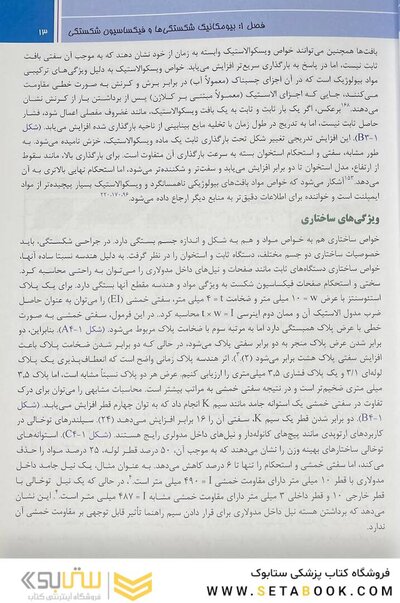 فصل ۱: بیومکانیک شکستگی‌ها و فیکساسیون شکستگی
۱۳
بافت‌ها همچنین می‌توانند خواص ویسکوالاستیک وابسته به زمان از خود نشان دهند که به موجب آن سفتی بافت
ثابت نیست، اما در پاسخ به بارگذاری سریع‌تر افزایش می‌یابد. خواص ویسکوالاستیک به دلیل ویژگی‌های ترکیبی
مواد بیولوژیک است که در آن اجزای چسبناک (معمولاً آب) در برابر برش و کرنش به صورت خطی مقاومت
می‌کنند، جایی که اجزای الاستیک (معمولاً مبتنی بر کلاژن) پس از برداشتن بار از کرنش نشان
می‌دهند. برعکس، اگر یک بار ثابت و ثابت به یک بافت ویسکوالاستیک، مانند غضروف مفصلی اعمال شود، فشار
حاصل ثابت نیست، اما به تدریج در طول زمان با تخلیه مایع بینابینی از ناحیه بارگذاری شده افزایش می‌یابد. (شکل
۱-B۳). این افزایش تدریجی تغییر شکل تحت بارگذاری ثابت یک ماده ویسکوالاستیک، خزش نامیده می‌شود. به
طور مشابه، سفتی و استحکام استخوان بسته به سرعت بارگذاری آن متفاوت است. برای بارگذاری بالا، مانند سقوط
از ارتفاع، مدل استخوان تا دو برابر افزایش می‌یابد و سفت‌تر و شکننده‌تر می‌شود، اما استحکام نهایی بالاتری به آن
می‌دهد. آشکار می‌شود که خواص مواد بافت‌های بیولوژیکی ناهمسانگرد و ویسکوالاستیک بسیار پیچیده‌تر از مواد
ایمپلنت است و خواننده برای اطلاعات دقیق‌تر به منابع دیگر ارجاع داده می‌شود.
ویژگی‌های ساختاری
خواص ساختاری هم به خواص مواد و هم به شکل و اندازه جسم بستگی دارد. در جراحی شکستگی، باید
خصوصیات ساختاری دو جسم مختلف، دستگاه ثابت و استخوان را در نظر گرفت. به دلیل هندسه نسبتا ساده آنها،
خواص ساختاری دستگاه‌های ثابت مانند صفحات و نیل‌های داخل مدولاری را می‌توان به راحتی محاسبه کرد.
سختی و استحکام صفحات فیکساسیون شکست به ویژه به اندازه و هندسه مقطع آنها بستگی دارد. برای یک پلاک
استئوسنتز با عرض w = ۱۰ میلی متر و ضخامت t = ۴ میلی متر، سفتی خمشی (EI) را می‌توان به عنوان حاصل
ضرب مدول الاستیک آن و ممان دوم اینرسی t × w = I محاسبه کرد. در این فرمول، سفتی خمشی به صورت
خطی با عرض پلاک همبستگی دارد اما به مرتبه سوم با ضخامت پلاک مربوط می‌شود. (شکل ۱-A۴). بنابراین، دو
برابر شدن عرض پلاک منجر به دو برابر سفتی پلاک می‌شود، در حالی که دو برابر شدن ضخامت پلاک باعث
افزایش سفتی پلاک هشت برابر می‌شود (۲). اثر هندسه پلاک زمانی واضح است که انعطاف‌پذیری یک پلاک
لوله‌ای ۱/۳ و یک پلاک فشاری ۳.۵ میلی‌متری را ارزیابی کنیم. عرض هر دو پلاک نسبتاً مشابه است، اما پلاک ۳.۵
میلی متری ضخیم‌تر است و در نتیجه سفتی خمشی به مراتب بیشتر است. محاسبات مشابهی را می‌توان برای درک
تفاوت در سفتی خمشی یک استوانه جامد مانند سیم K انجام داد که به توان چهارم قطر افزایش می‌یابد. (شکل
۱-B۴). دو برابر شدن قطر یک سیم K، سفتی آن را ۱۶ برابر افزایش می‌دهد (۲۴). سیلندرهای توخالی در
کاربردهای ارتوپدی مانند پیچ‌های کانوله‌دار و نیل‌های داخل مدولاری رایج هستند. (شکل ۱-C۴). استوانه‌های
توخالی ساختارهای بهینه وزن را نشان می‌دهند که به موجب آن، ۵۰ درصد قطر لوله، ۲۵ درصد مواد را حذف
می‌کند، اما سفتی خمشی و استحکام را تنها تا ۶ درصد کاهش می‌دهد. به عنوان مثال، یک نیل جامد داخل
مدولاری با قطر ۱۰ میلی متر دارای مقاومت خمشی I = ۴۹۰ میلی متر است. در حالی که یک نیل توخالی با
قطر خارجی ۱۰ و قطر داخلی ۳ میلی متر دارای مقاومت خمشی مشابه I = ۴۸۷ میلی متر است. این نشان
می‌دهد که برداشتن هسته نیل داخل مدولاری برای قرار دادن سیم راهنما تأثیر قابل توجهی بر مقاومت خمشی آن
ندارد.
فروشگاه کتاب پزشکی ستابوک
WWW.SETABOOK.COM
ستابوک
فروشگاه اینترنتی کتاب